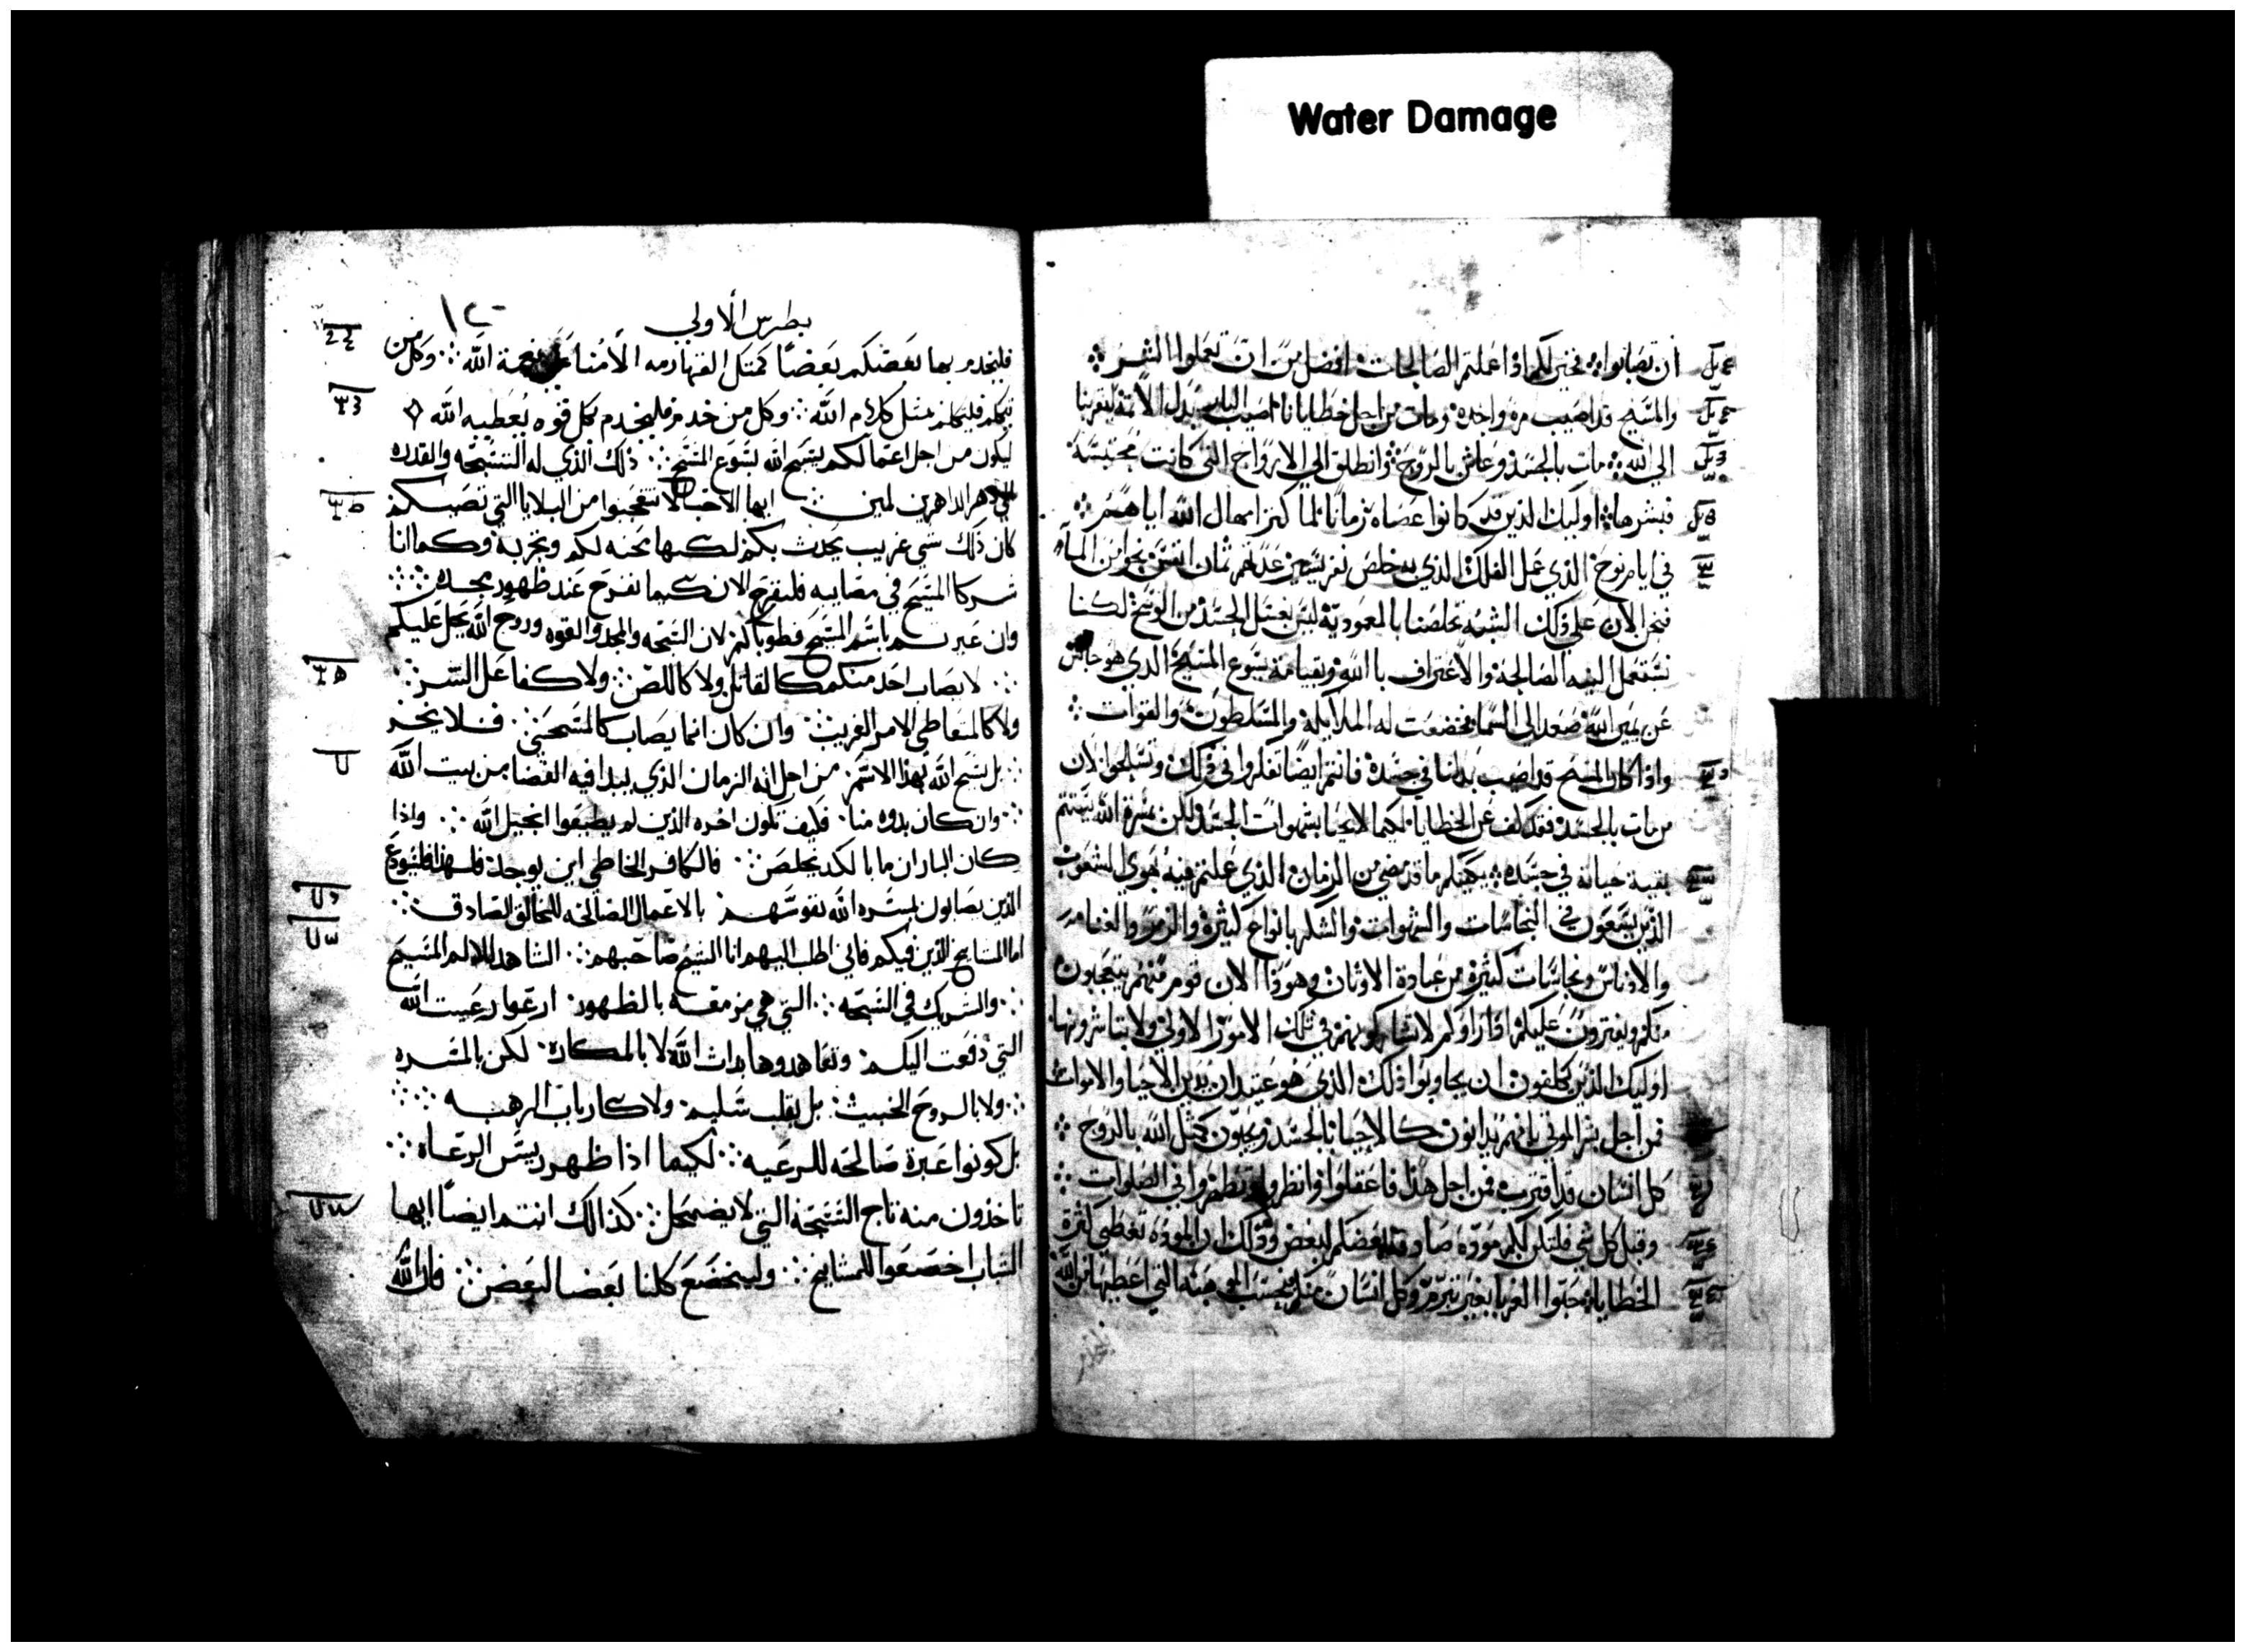 Water Damage
أن تصابوا فخير لكم اذا عملتم الصالحات افضل من ان تعملوا الشر
والمسيح قد اصيب مرة واحدة ومات من اجل خطايانا اصيب البار بدل الاثمة ليقربنا
الي الله مات بالجسد وعاش بالروح وانطلق الي الارواح التي كانت محتبسة
فبشرها اوليك الذين قد كانوا عصاه زمانا لما كثر امهال الله اياهم
في ايام نوح الذي عمل الفلك الذي به خلص نفر يسير عدتهم ثمان انفس نجوا من الماء
فنحن الان علي ذلك الشبه تخلصنا بالمعمودية ليس بغسل الجسد من الوسخ لكننا
نستعمل النيه الصالحة والاعتراف بالله وبقيامة يسوع المسيح الذي هو جالس
عن يمين الله صعد الي السما وخضعت له الملايكة والسلطون والقوات
واذا كان المسيح قد اصيب بدلنا في جسده فانتم ايضا تفكروا في ذلك وتسلحوا لان
من مات بالجسد فقد كف عن الخطايا لكيما لا يحيا بشهوات الجسد لكن بمسرة الله يستتم
بقية حياته في جسده يكفيكم ما قد مضي من الزمان الذي عملتم فيه بهوي الشعوب
الذين يسعون في النجاسات والشهوات والسكر بانواع كثيرة والزمر والغنا
والادناس ونجاسات كثيرة من عبادة الاوثان وهوذا الان قوم منهم يتعجبون
منكم ويفترون عليكم اذ راوكم لا تشاركونهم في تلك الامور الاولي ولا تباشرونها
اوليك الذين يكلفون ان يجاوبوا ذلك الذي هو عتيد ان يدين الاحيا والاموات
فمن اجل بشر الموتي بانهم يدانون كالاحيا بالجسد ويحيون كمثل الله بالروح
كل انسان قد اقترب فمن اجل هذا فاعقلوا وانظروا في الصلوات
وقبل كل شي فلتكن لكم مودة بعضكم لبعض وذلك ان المودة تغطي كثرة
الخطايا حبوا الغربا بغير تبرم وكل انسان منكم التي اعطيها من الله
بطرس الاولي
فليخدم بها بعضكم بعضا كمثل القهارمه الامنا نعمة الله وكل من
يتكلم فليتكلم مثل كلام الله وكل من خدم فليخدم بكل قوه يعطيه الله
ليكون من اجل اعمالكم يسبح الله يسوع المسيح ذلك الذي له التسبحه والقدره
الي دهر الداهرين امين ايها الاحبا لا تتعجبوا من البلايا التي تصبكم
كان ذلك شي غريب يحدث بكم لكنها محنه لكم وتجربة وكما انا
شركا المسيح في مصايبه فلنفرح الان كيما نفرح عند ظهور مجده
وان عيرتم باسم المسيح فطوباكم لان التسبحه والمجد والقوه وروح الله يحل عليكم
لا يصاب احد منكم كالقاتل ولا كاللص ولا كفاعل الشر
ولا كالمتعاطي الامر الغريب وان كان انما يصاب كالمسيحي فلا يخز
بل يسبح الله بهذا الاسم من اجل انه الزمان الذي يبدا فيه القضا من بيت الله
وان كان بدوه منا فكيف تكون اخره الذين لم يطيعوا انجيل الله واذا
كان البار ان ما بالكد يخلص فالكافر الخاطي اين يوجد فلهذا فليتودع
الذين يصابون بمسره الله نفوسهم بالاعمال الصالحه للخالق الصادق
اما المشايخ الذين فيكم فاني اطلب اليهم انا الشيخ صاحبهم الشاهد لالام المسيح
والشريك في التسبحه التي هي مزمعة بالظهور ارعوا رعيت الله
التي دفعت اليكم وتعاهدوها بذات الله لا بالمكارة لكن بالمسره
ولا بالروح الخبيث بل بقلب سليم ولا كارباب الرهبه
بل كونوا عبرة صالحه للرعيه لكيما اذا ظهر ريس الرعاه
تاخذون منه تاج التسبحه التي لا يضمحل كذالك انتم ايضا ايها
الشباب اخضعوا للمشايخ وليخضع كلنا بعضا لبعض فان الله